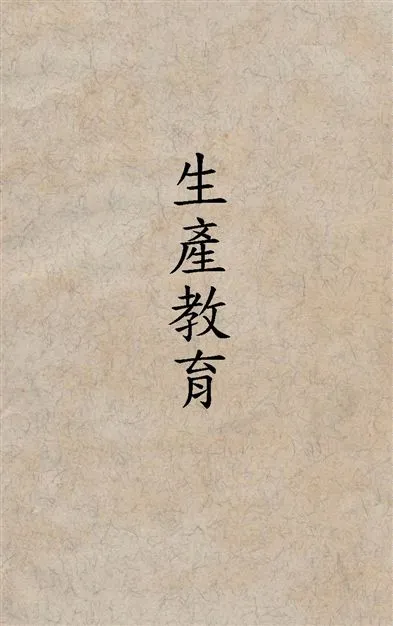 生產教育